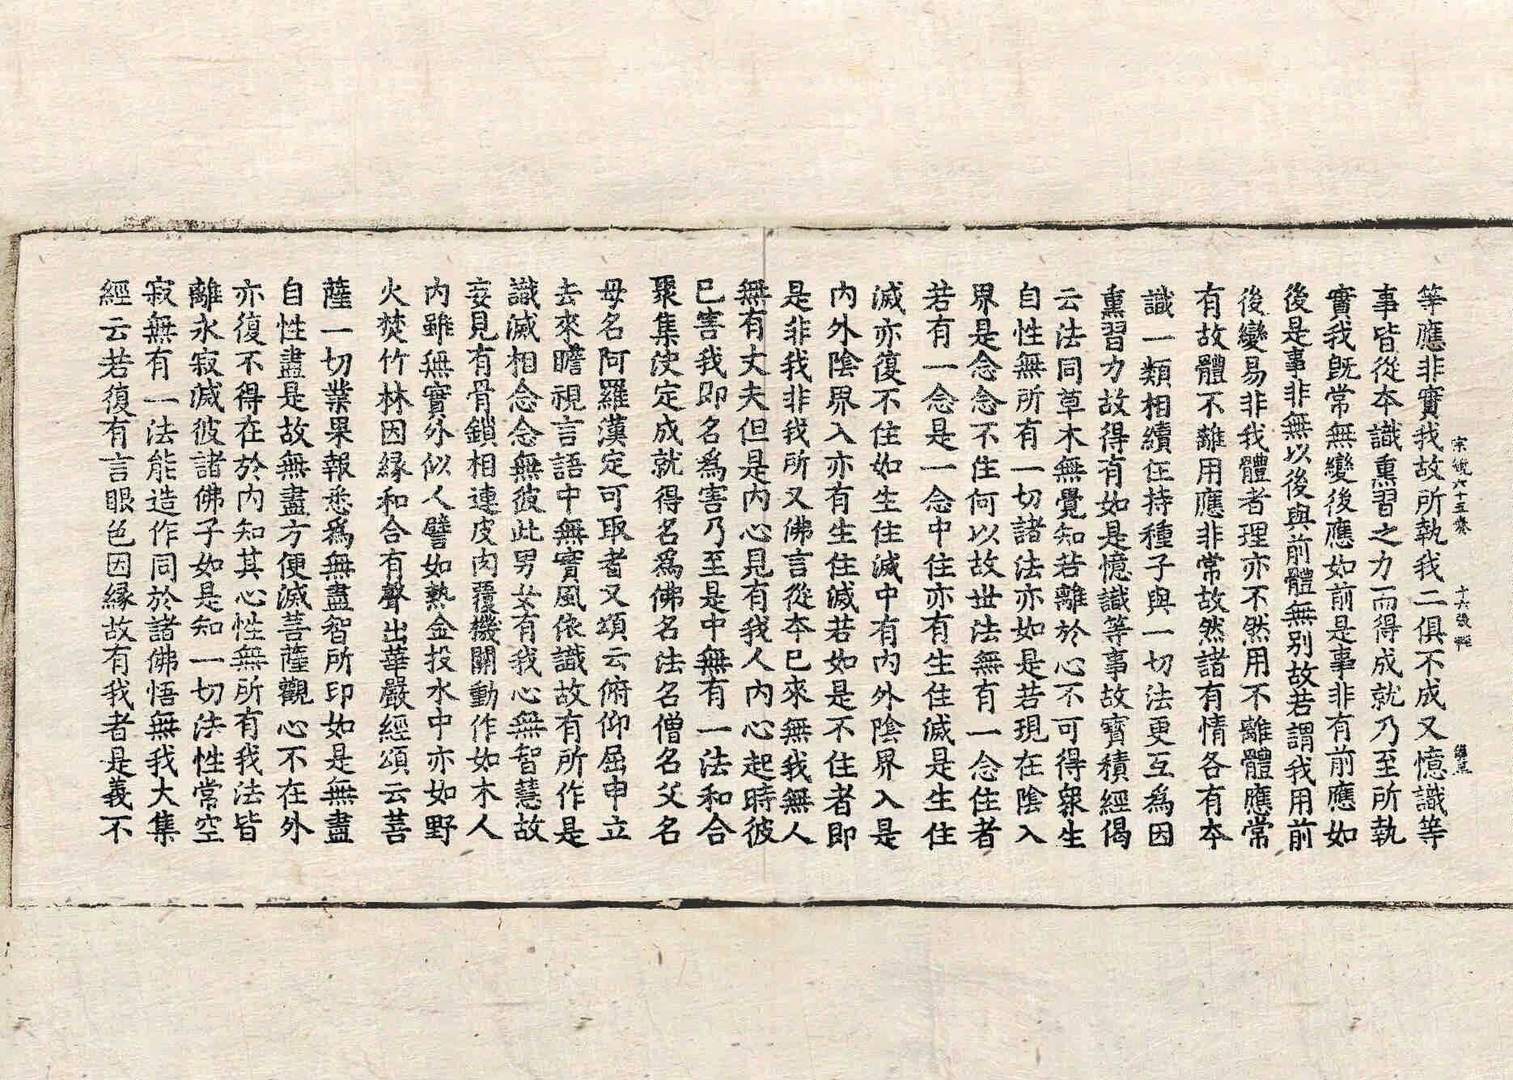 等應非實我故所執我二俱不成又憶識等
宗鏡六十五卷 十六張
事皆從本識熏習之力而得成就乃至所執
實我既常無變後應如前是事非有前應如
後是事非無以後與前體無別故若謂我用前
後變易非我體者理亦不然用不離體應常
有故體不離用應非常故然諸有情各有本
識一類相續任持種子與一切法更互為因
熏習力故得有如是憶識等事故寶積經偈
云法同草木無覺知若離於心不可得衆生
自性無所有一切諸法亦如是若現在陰入
界是念念不住何以故世法無有一念住者
若有一念是一念中住亦有生住滅是生住
滅亦復不住如生住滅中有內外陰界入是
內外陰界入亦有生住滅若如是不住者即
是非我非我所又佛言從本已來無我無人
無有丈夫但是內心見有我人內心起時彼
已害我即名為害乃至是中無有一法和合
聚集決定成就得名為佛名法名僧名父名
母名阿羅漢定可取者又頌云俯仰屈申立
去來瞻視言語中無實風依識故有所作是
識滅相念念無彼此男女有我心無智慧故
妄見有骨鎖相連皮肉覆機關動作如木人
內雖無實外似人譬如熱金投水中亦如野
火焚竹林因緣和合有聲出華嚴經頌云菩
薩一切業果報悉為無盡智所印如是無盡
自性盡是故無盡方便滅菩薩觀心不在外
亦復不得在於內知其心性無所有我法皆
離永寂滅彼諸佛子如是知一切法性常空
寂無有一法能造作同於諸佛悟無我大集
經云若復有言眼色因緣故有我者是義不